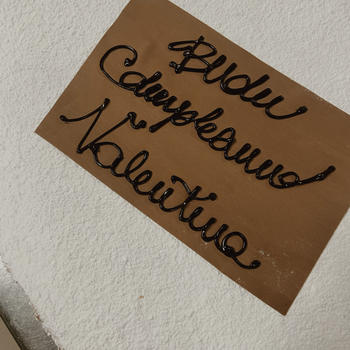 Buon
Compleanno
Valentina